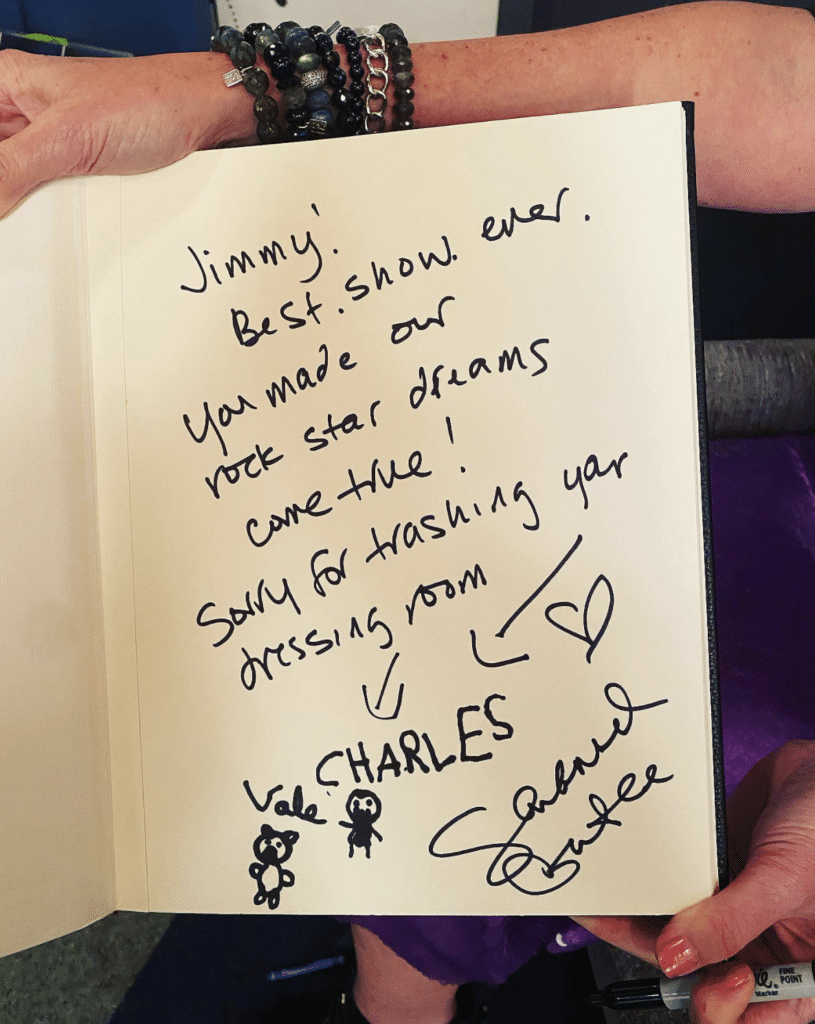 Jimmy!
Best. show. ever.
You made our
rock star dreams
come true!
Sorry for trashing your
dressing room
CHARLES
Vale
FINE
POINT
Marker